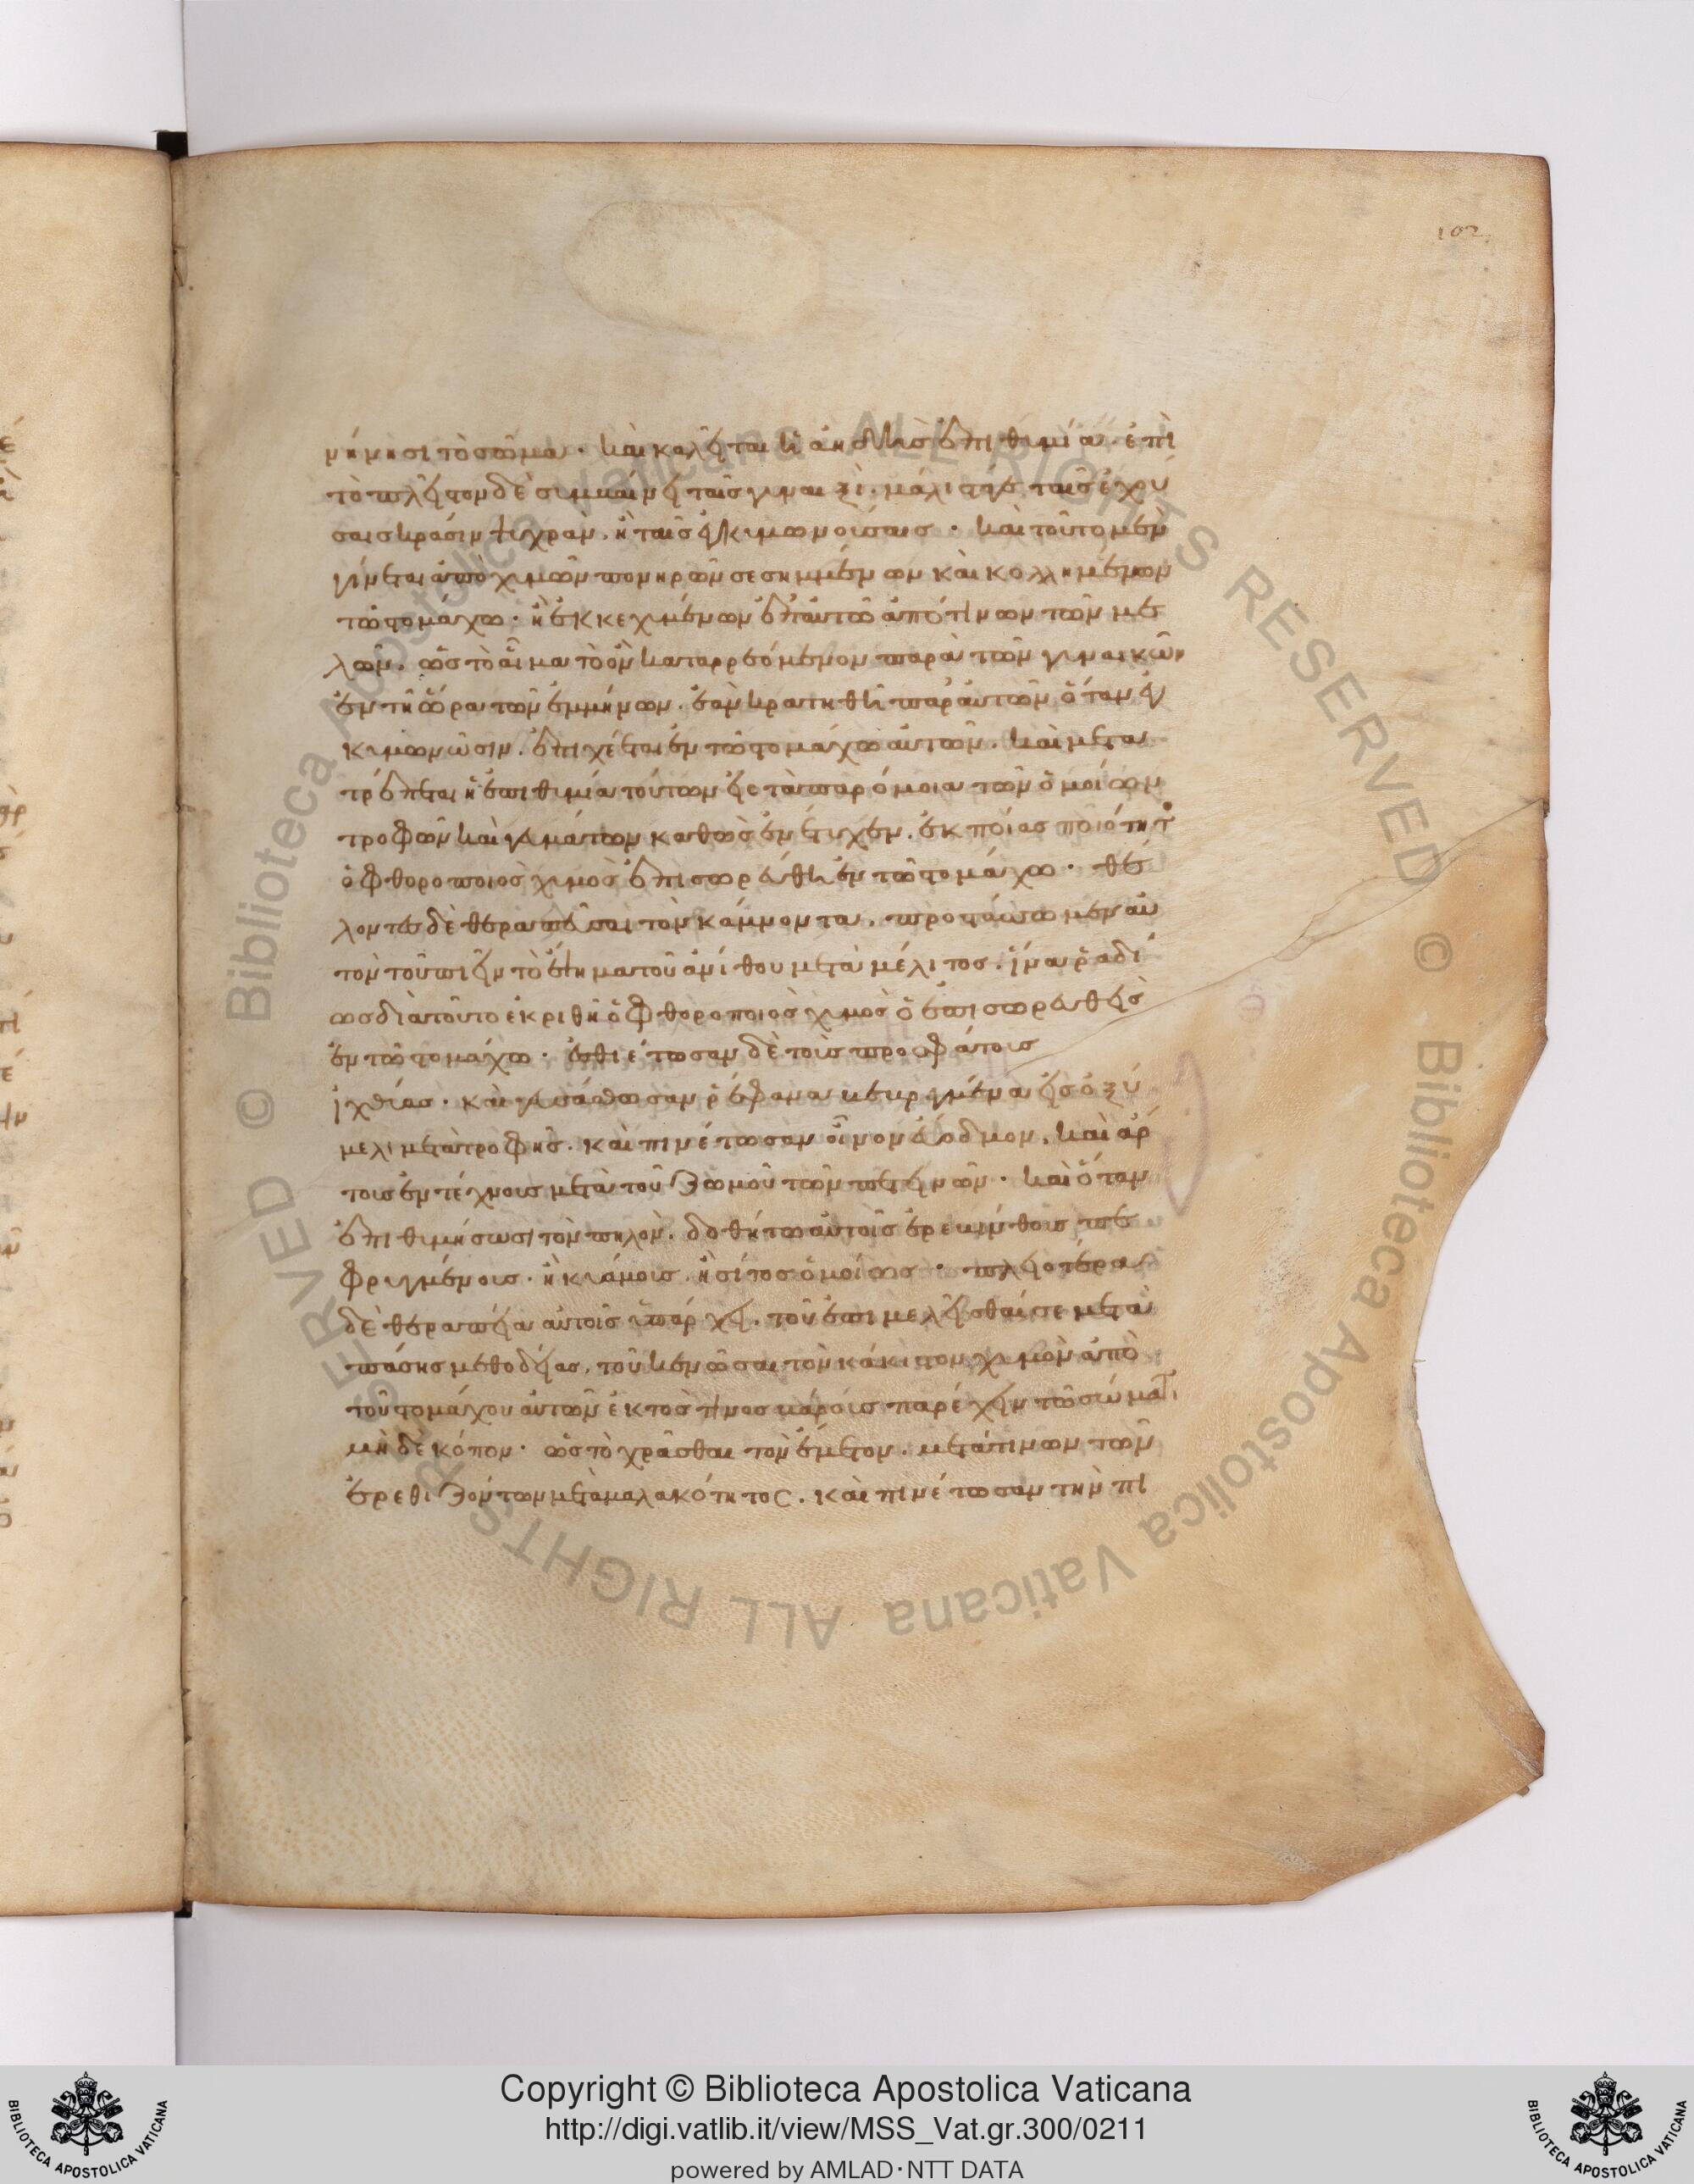 102
νήνησι τὸ σῶμα· καὶ καλεῖται ἡ ἀηδὴς ἐπιθυμία. ἐπὶ
τὸ πλεῖστον δὲ συμβαίνει ταῖς γυναιξὶ. μάλιστα ταῖς ἐχού
σαις κράσιν ψυχρὰν. ἢ ταῖς ἐγκυμονούσαις· καὶ τοῦτο μὲν
γίνεται ἀπὸ χυμῶν πονηρῶν σεσημμένων καὶ κολλημένων
τῷ στομάχῳ· ἢ ἐκκεχυμένων ἐπ αὐτῶ ἀπό τινων τῶν με
λῶν. ὡς τὸ αἷμα τὸ ὂν καταρρεόμενον παρὰ τῶν γυναικῶν
ἐν τῇ ὥρα τῶν ἐμμήνων. ἐὰν κρατηθῆ παρ αὐτῶν ὅταν ἐγ
κυμονῶσιν. ἐπιχέεται ἐν τῷ στομάχω αὐτῶν. καὶ μετα
τρέπεται ἡ ἐπιθυμία τούτων εἰς τὰ παρόμοια τῶν ὁμοίων
τροφῶν καὶ γευμάτων καθὼς ἐνέτυχεν. ἐκ ποίας ποιότητος
ὁ φθοροποιὸς χυμὸς ἐπισωρεύθη ἐν τῷ στομάχω· θέ
λοντες δὲ θεραπεῦσαι τὸν κάμνοντα. προστάσσομεν αὐ
τὸν τοῦ πιεῖν τὸ ἕψημα τοῦ ἀνίθου μετὰ μέλιτος. ἵνα ῥαδί
ως διὰ τοῦτο ἐκριθῆ ὁ φθοροποιὸς χυμὸς ὁ ἐπισωρευθεὶς
ἐν τῷ στομάχω· ἐσθιέτωσαν δὲ τοὺς προσφάτους
ἰχθύας· καὶ γευσάσθωσαν ῥέφανα κεκρυμμένα εἰς ὀξύ
μελι μετὰ τροφῆς. καὶ πινέτωσαν οἶνον εὔοδμον. καὶ ἄρ
τοις ἐντέχνοις μετὰ τοῦ ζωμοῦ τῶν πετεινῶν· καὶ ὅταν
ἐπιθυμήσωσι τὸν πηλὸν. δοθήτω αὐτοῖς ἐρεβίνθοις πε
φρυγμένοις. ἢ κυάμοις. ἢ σίτος ὁμοίως· πλειοτέρα
δὲ θεραπεία αὐτοῖς ὑπάρχει. τοῦ ἐπιμελεῖσθαί σε μετὰ
πάσης μεθοδείας. τοῦ κενῶσαι τὸν κάκιστον χυμὸν ἀπὸ
τοῦ στομάχου αὐτῶν ἐκτὸς τινος βάρους παρέχειν τῷ σώματι
μηδὲ κόπον· ὡς τὸ χρᾶσθαι τὸν ἔμετον. μετά τινων τῶν
ἐρεθιζόντων μετὰ μαλακότητος. καὶ πινέτωσαν τὴν πι
Copyright © Biblioteca Apostolica Vaticana
http://digi.vatlib.it/view/MSS_Vat.gr.300/0211
powered by AMLAD·NTT DATA
BIBLIOTECA APOSTOLICA VATICANA
BIBLIOTECA APOSTOLICA VATICANA
© Biblioteca Apostolica Vaticana ALL RIGHTS RESERVED
© Biblioteca Apostolica Vaticana ALL RIGHTS RESERVED